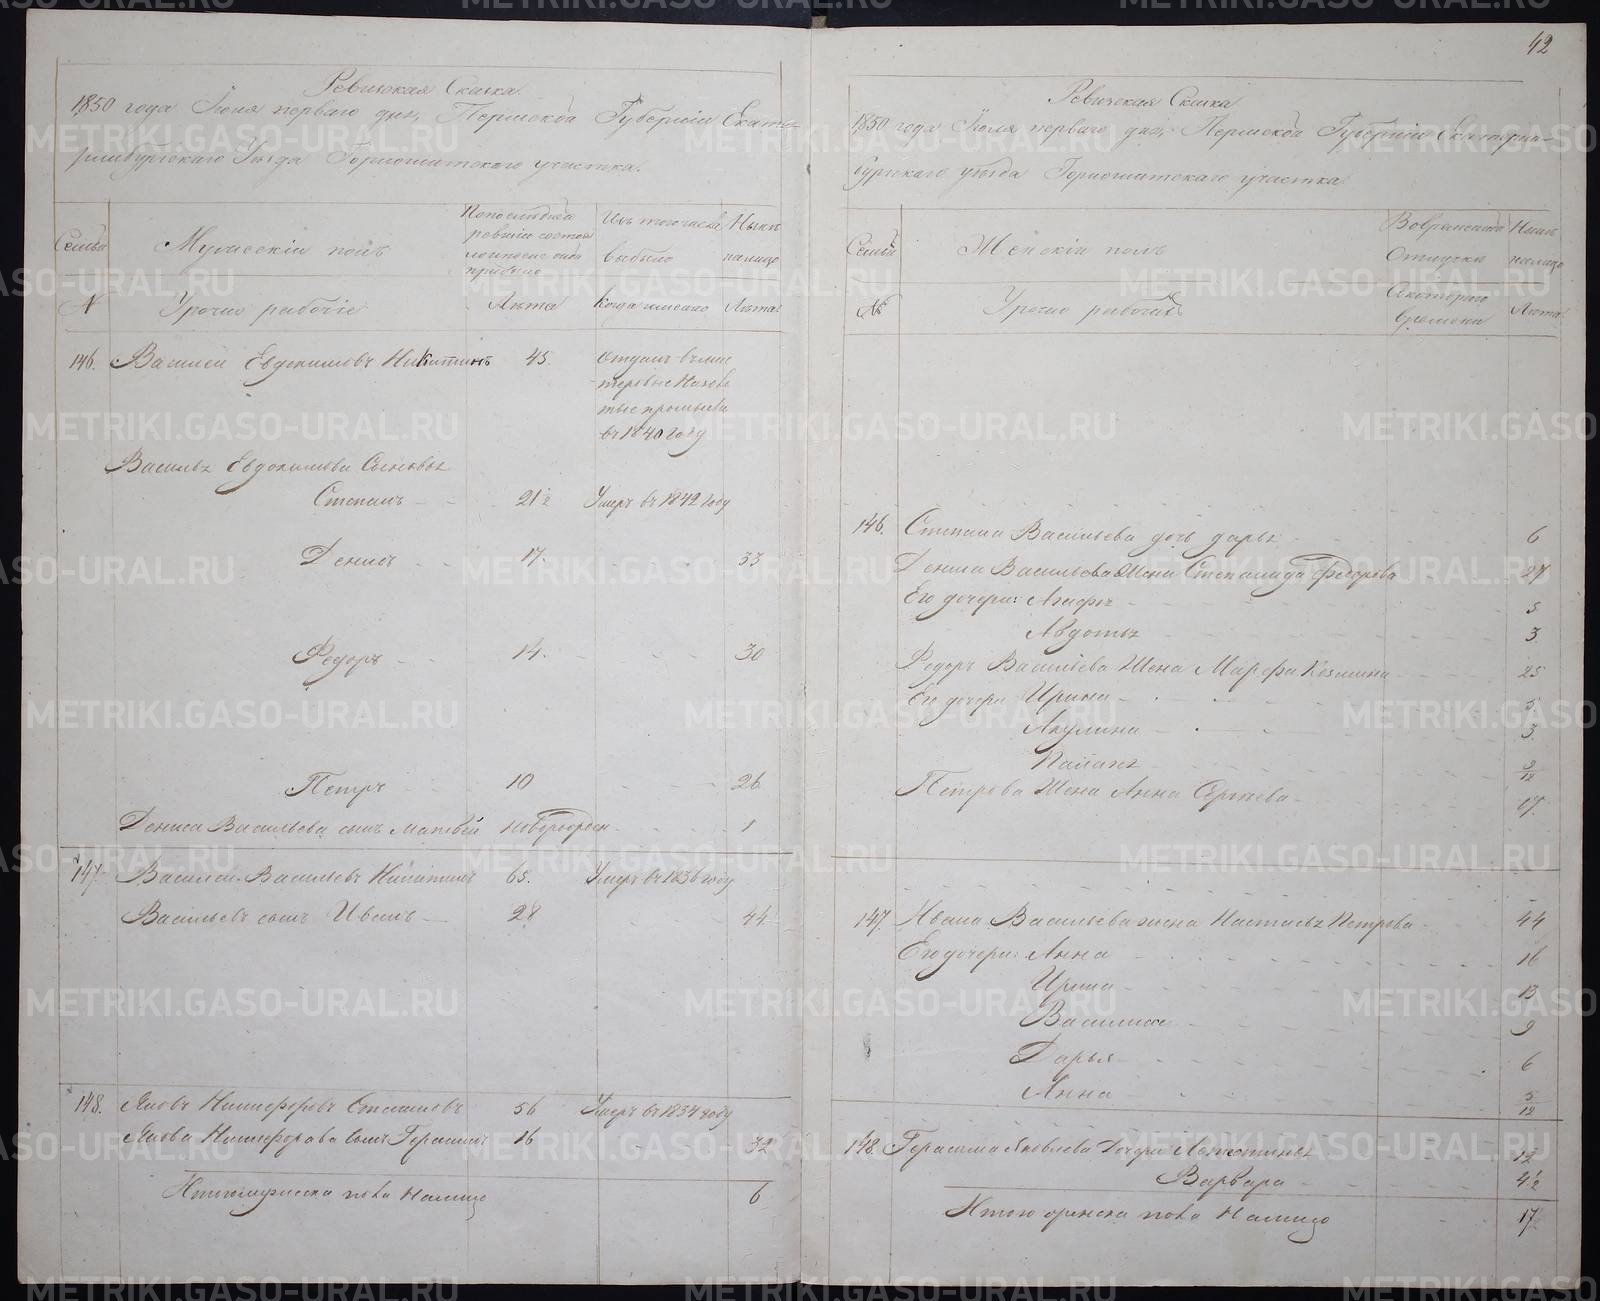 Ревизская Сказка
1850 года Июля перваго дня, Пермской Губернии Екате-
ринбургскаго Уезда Горнощитскаго участка.
Семьи
Мужескій полъ
По последней
ревизіи состоя
ло и после онаго
прибыло
Изъ того числа
выбыло
Ныне
налицо
№
Урочно рабочіе
Лета
Когда имянно
Лета
146. Василей Евдокимовъ Никитинъ 45. отданъ въ
в 1840 году
Василья Евдокимова Сыновья
Степанъ 21½ Умеръ въ 1842 году
Денисъ 17. 33
Федоръ 14. 30
Петръ 10 26
Дениса Васильева сынъ Матвей новорожден. 1
147. Василей Васильевъ Никитинъ 65. Умеръ въ 1836 году
Васильевъ сынъ Иванъ 28 44
148. Яковъ Никифоровъ 56 Умеръ въ 1834 году
Якова Никифорова Сынъ Герасимъ 16 32
Итого мужеска пола Налицо 6
42
Ревизская Сказка
1850 года Июля перваго дня, Пермской Губерніи Екатерин-
бургскаго уезда Горнощитскаго участка
Семьи
Женскій полъ
Во временной
Отлучке
Ныне
налицо
№
Урочно рабочихъ
Скотораго
времени
Лета
146. Степана Васильева дочь Дарья 6
Дениса Васильева Жена Степанида Федорова 27
Его дочери: Агафья 5
Авдотья 3
Федоръ Васильева Жена Марфа Козмина 25
Его дочери Ирина 5
Акулина 3
Палагея 3/12
Петрова Жена Анна Сергеева 17.
147. Ивана Васильева жена Настасья Петрова 44
Его дочери: Анна 16
Ирина 13
Василиса 9
Дарья 6
Анна 5/12
148. Герасима Яковлева Дочери 12
Варвара 4½
Итого женска пола Налицо 17
METRIKI.GASO-URAL.RU